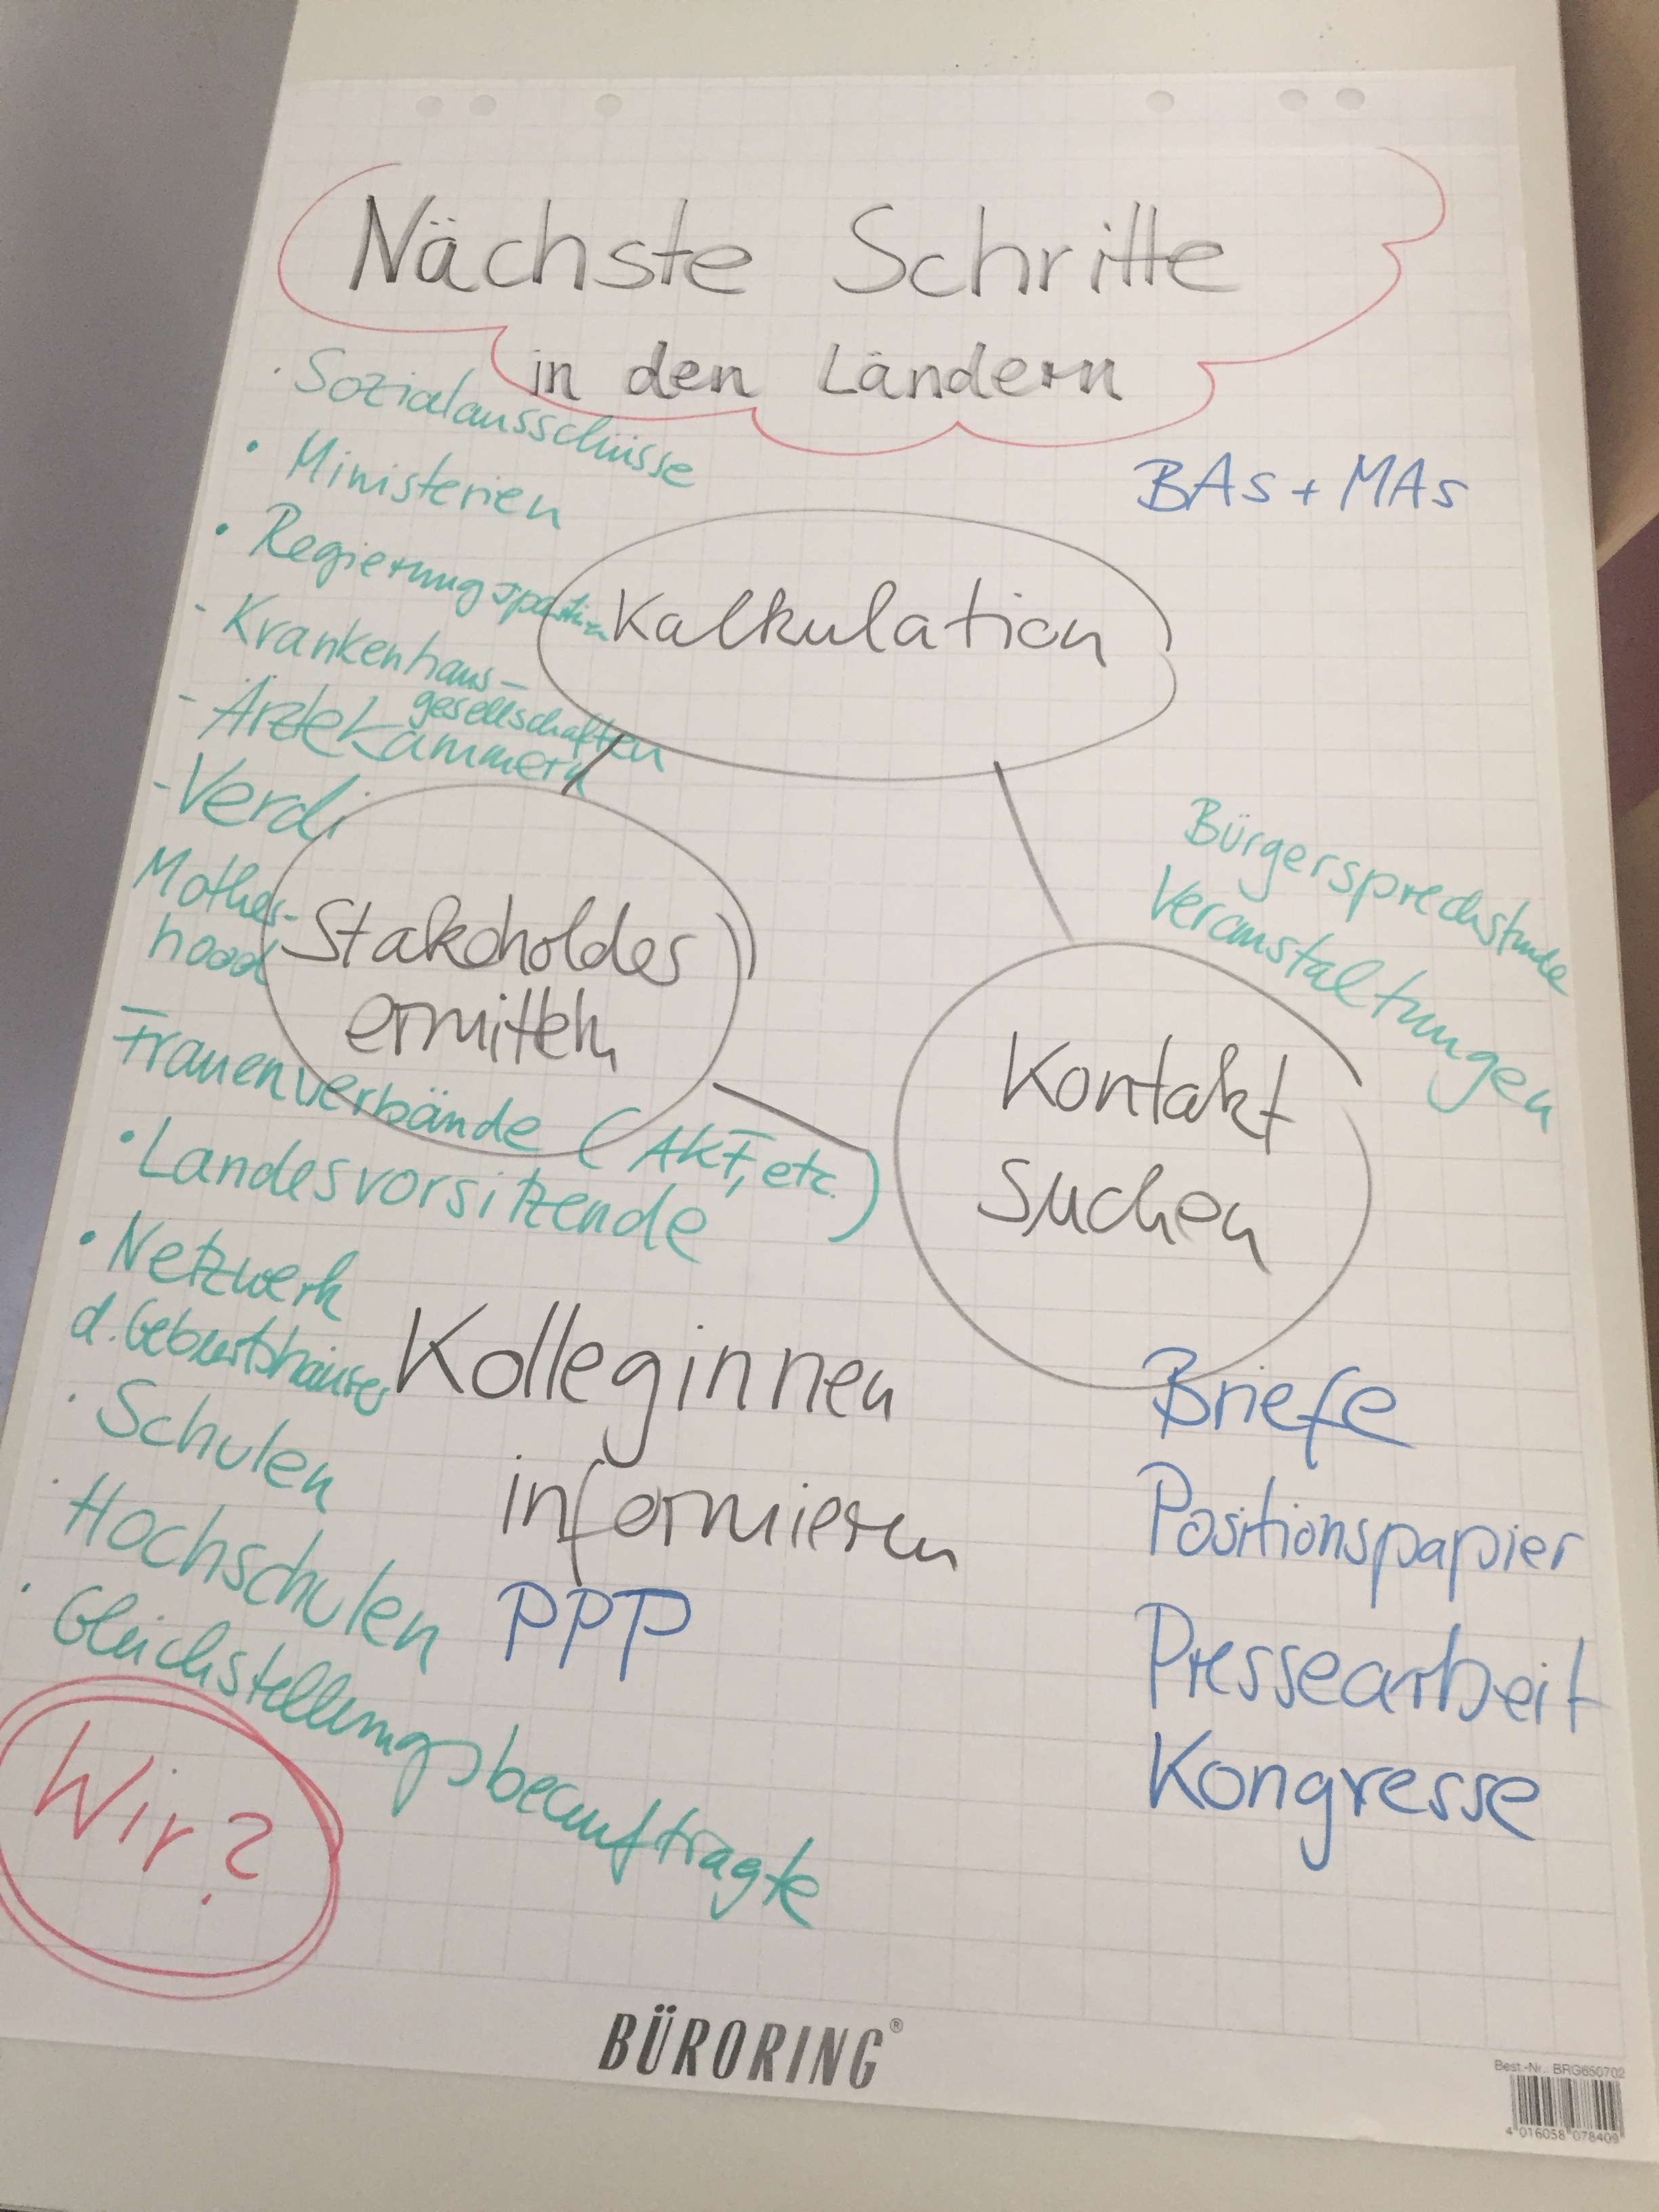 Nächste Schritte
in den Ländern
· Sozialausschüsse
• Ministerien
• Regierungsparteien
- Krankenhaus-
gesellschaften
- Ärztekammern
- Verdi
Mother-
hood
Frauenverbände (AKF, etc.)
• Landesvorsitzende
• Netzwerk
d. Geburtshäuser
· Schulen
· Hochschulen
· Gleichstellungsbeauftragte
Wir?
BAs + MAs
Kalkulation
Stakeholder
ermitteln
Bürgersprechstunde
Veranstaltungen
Kontakt
suchen
Kolleginnen
informieren
PPP
Briefe
Positionspapier
Pressearbeit
Kongresse
BÜRORING®
Best.-Nr.: BRG650702
4 016058 078409